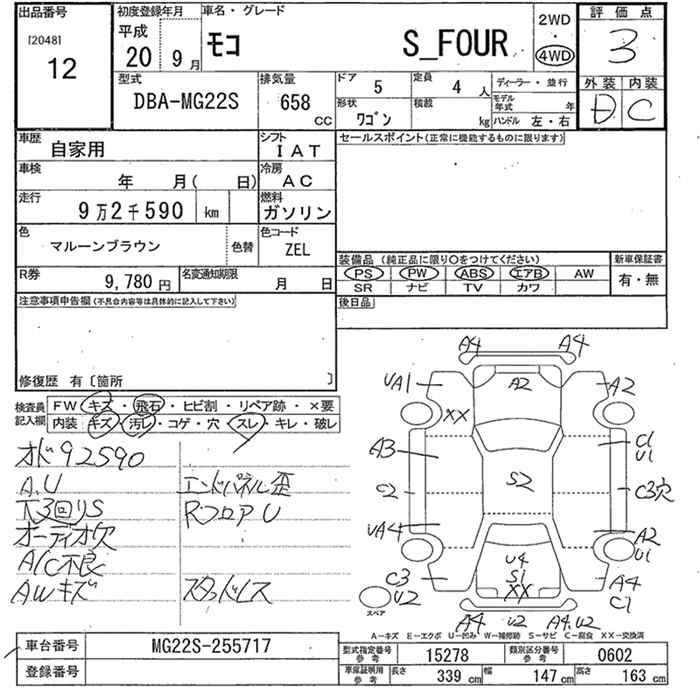 出品番号
[2048]
12
初度登録年月
平成
20 9月
車名・グレード
モコ S_FOUR
2WD
4WD
評価点
3
外装 内装
D C
型式
DBA-MG22S
排気量
658
CC
ドア 5
定員 4 人
形状 ワゴン
積載 kg
ディーラー・並行
モデル年式 年
ハンドル 左・右
車歴
自家用
シフト
IAT
セールスポイント(正常に機能するものに限ります)
車検
年 月( 日)
冷房
AC
走行
9万2千590 km
燃料
ガソリン
色
マルーンブラウン
色替
色コード
ZEL
R券
9,780円
名変通知期限
月 日
装備品 (純正品に限り○をつけてください)
PS PW ABS エアB AW
SR ナビ TV カワ
新車保証書
有・無
後日品
注意事項申告欄(不具合内容等は具体的に記入して下さい)
修復歴 有〔箇所 〕
検査員記入欄
FW キズ・飛石・ヒビ割・リペア跡・×要
内装 キズ・汚レ・コゲ・穴・スレ・キレ・破レ
オド92590
A.U エンドパネル歪
大3回りS RフロアU
オーディオ欠
A/C不良
AWキズ スタッドレス
A4 A4
UA1 A2 A2
XX
A3 C1
U1
C2 S2 C3穴
UA4 A2
U1
U4
S1
XX
C3 A4
U2 C1
スペア
A4 U2 A4,U2
A-キズ E-エクボ U-凹み W-補修跡 S-サビ C-腐食 XX-交換済
車台番号
MG22S-255717
登録番号
型式指定番号
参考
15278
類別区分番号
参考
0602
車庫証明用
参考
長さ 339 cm
幅 147 cm
高さ 163 cm